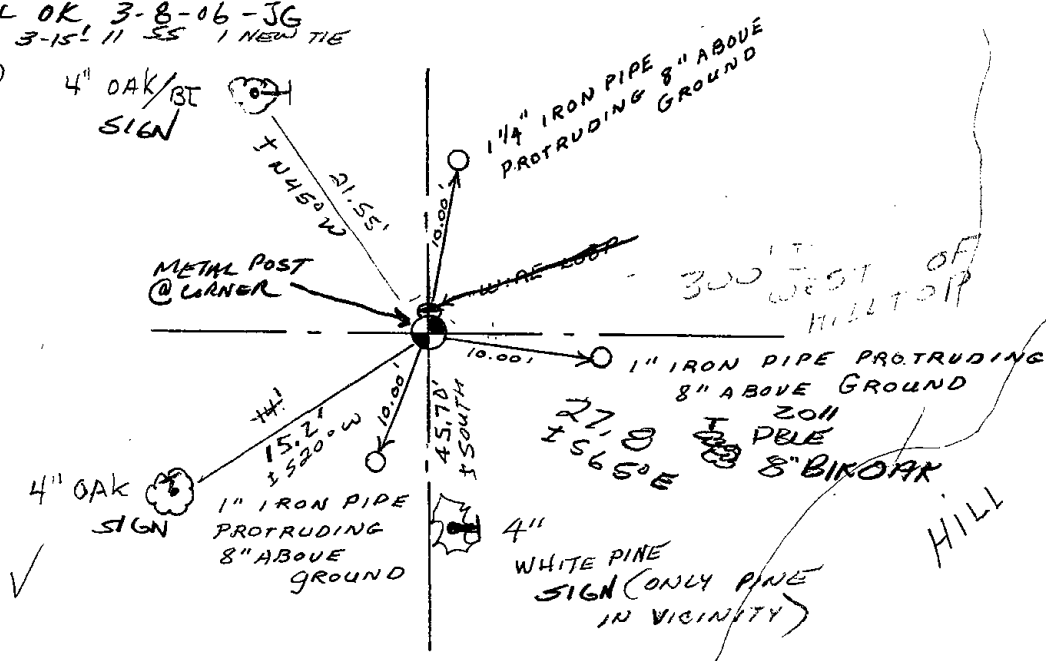 L OK 3-8-06-JG
3-15-11 SS 1 NEW TIE
4" OAK/BT
SIGN
± N45°W
21.55'
10.00'
1 1/4" IRON PIPE
PROTRUDING 8" ABOVE
GROUND
METAL POST
@ CORNER
WIRE LOOP
300' ± WEST OF
HILLTOP
10.00'
1" IRON PIPE PROTRUDING
8" ABOVE GROUND
27.8
± S65°E
2011
DBLE
8" BLK OAK
14'
15.2'
± S20°W
10.00'
45.70'
± SOUTH
4" OAK
SIGN
1" IRON PIPE
PROTRUDING
8" ABOVE
GROUND
4"
WHITE PINE
SIGN (ONLY PINE
IN VICINITY)
HILL